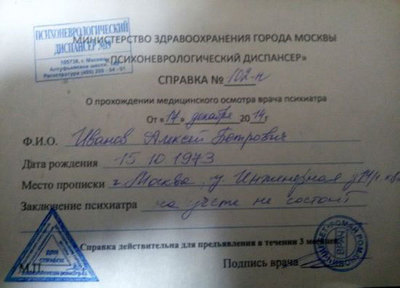 ПСИХОНЕВРОЛОГИЧЕСКИЙ
ДИСПАНСЕР №19
МИНИСТЕРСТВО ЗДРАВООХРАНЕНИЯ ГОРОДА МОСКВЫ
«ПСИХОНЕВРОЛОГИЧЕСКИЙ ДИСПАНСЕР»
СПРАВКА № 102-н
О прохождении медицинского осмотра врача психиатра
От «17» декабря 2014г.
Ф.И.О. Иванов Алексей Петрович
Дата рождения 15.10.1973
Место прописки г. Москва. у. Инженерная
Заключение психиатра на учете не состоит
Справка действительна для предъявления в течении 3 месяцев
М.П.
Подпись врача